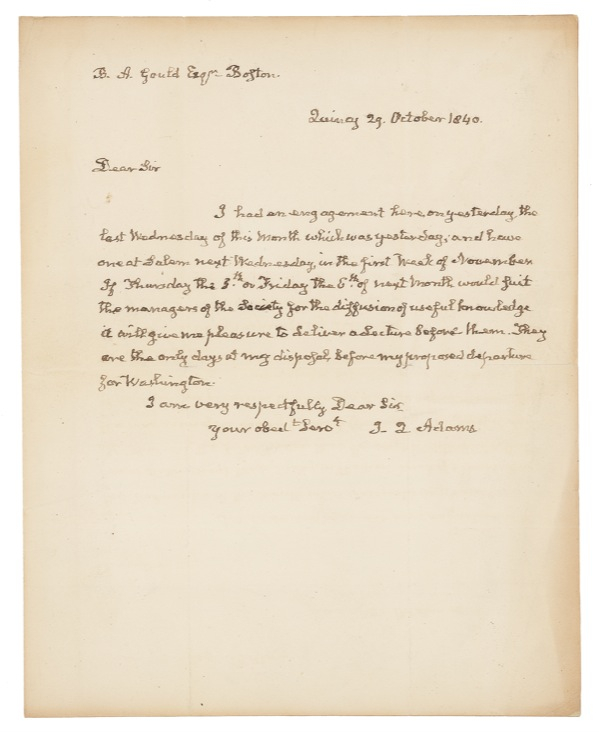 B. A. Gould Esqr. Boston.
Quincy 29. October 1840.
Dear Sir
I had an engagement here on yesterday, the
last Wednesday of this Month which was yesterday; and have
one at Salem next Wednesday, in the first Week of November
If Thursday the 5.th or Friday the 6.th of next Month would suit
the managers of the Society for the diffusion of useful knowledge
it will give me pleasure to deliver a Lecture before them. They
are the only days at my disposal, before my proposed departure
for Washington.
I am very respectfully Dear Sir
your obedt. Servt. J. Q. Adams